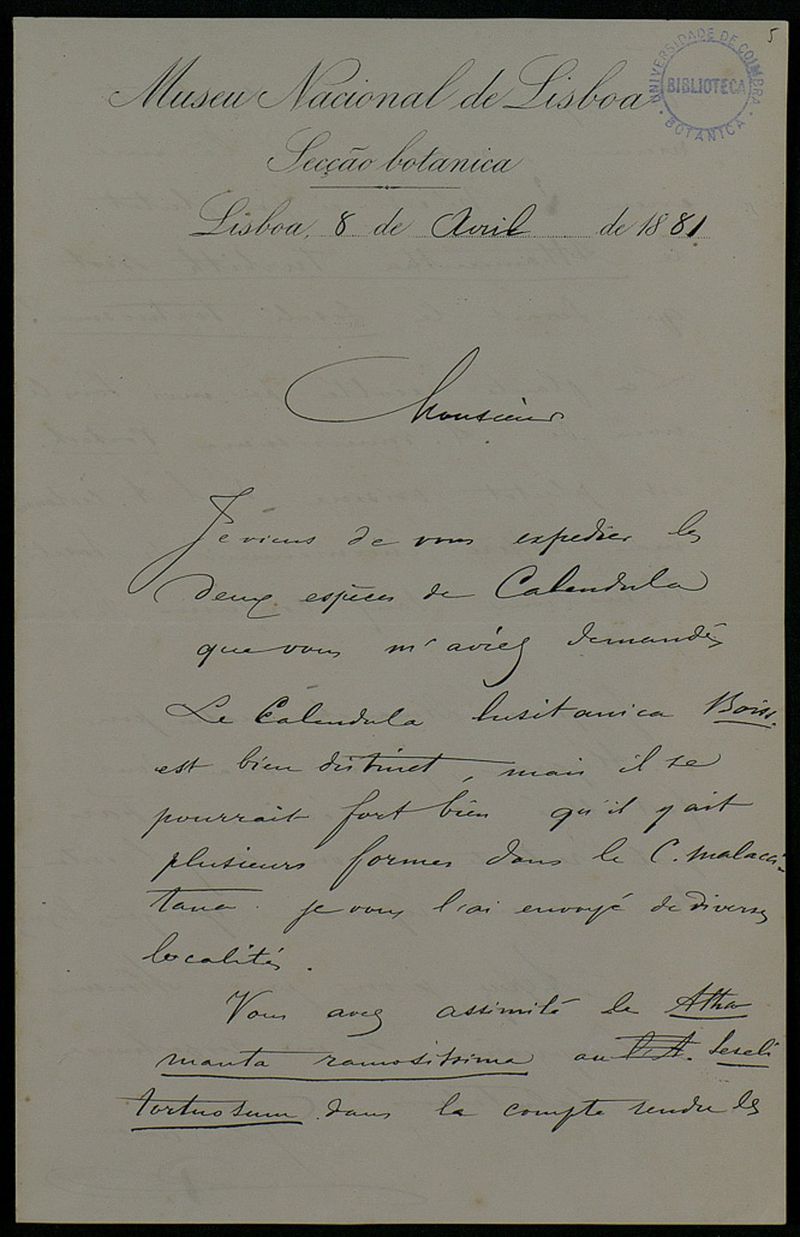 5
UNIVERSIDADE DE COIMBRA
BIBLIOTECA
BOTANICA
Museu Nacional de Lisboa
Secção botanica
Lisboa, 8 de Avril de 1881
Monsieur
Je viens de vous expedier les
deux espèces de Calendula
que vous m'aviez demandés
Le Calendula lusitanica Boiss.
est bien distinct, mais il se
pourrait fort bien qu'il y ait
plusieurs formes dans le C. malaci-
tana. je vous l'ai envoyé de diverses
localités.
Vous avez assimilé le Atha
manta ramosissima au Seseli
tortuosum dans la compte rendu de